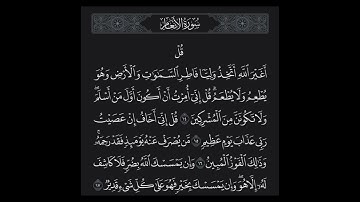 سُورَةُ الأَنْعَامِ
قُلْ
أَغَيْرَ اللَّهِ أَتَّخِذُ وَلِيًّا فَاطِرِ السَّمَٰوَٰتِ وَالْأَرْضِ وَهُوَ
يُطْعِمُ وَلَا يُطْعَمُ ۗ قُلْ إِنِّي أُمِرْتُ أَنْ أَكُونَ أَوَّلَ مَنْ أَسْلَمَ ۖ
وَلَا تَكُونَنَّ مِنَ الْمُشْرِكِينَ ١٤ قُلْ إِنِّي أَخَافُ إِنْ عَصَيْتُ
رَبِّي عَذَابَ يَوْمٍ عَظِيمٍ ١٥ مَّن يُصْرَفْ عَنْهُ يَوْمَئِذٍ فَقَدْ رَحِمَهُ ۚ
وَذَٰلِكَ الْفَوْزُ الْمُبِينُ ١٦ وَإِن يَمْسَسْكَ اللَّهُ بِضُرٍّ فَلَا كَاشِفَ
لَهُ إِلَّا هُوَ ۖ وَإِن يَمْسَسْكَ بِخَيْرٍ فَهُوَ عَلَىٰ كُلِّ شَيْءٍ قَدِيرٌ ١٧